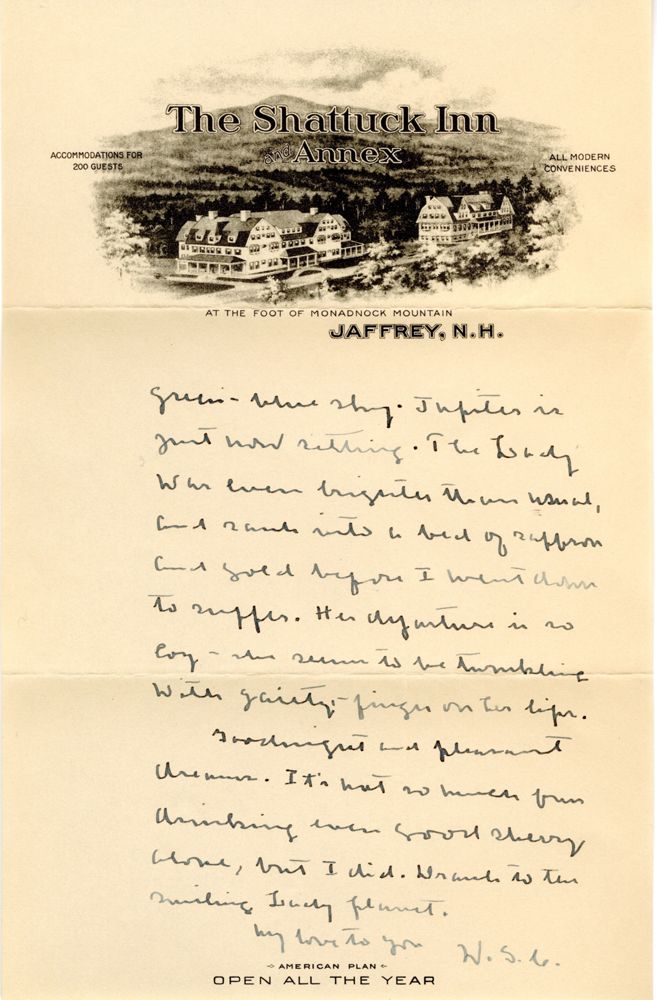 The Shattuck Inn
and Annex
ACCOMMODATIONS FOR
200 GUESTS
ALL MODERN
CONVENIENCES
AT THE FOOT OF MONADNOCK MOUNTAIN
JAFFREY, N.H.
green-blue sky. Jupiter is
just now setting. The Lady
was even brighter than usual,
and sank into a bed of saffron
and gold before I went down
to supper. Her departure is so
coy - she seems to be trembling
with gaiety, - finger on her lips.
Goodnight and pleasant
dreams. It's not so much fun
drinking even good sherry
alone, but I did. Drank to the
smiling Lady planet.
My love to you
W. S. C.
AMERICAN PLAN
OPEN ALL THE YEAR